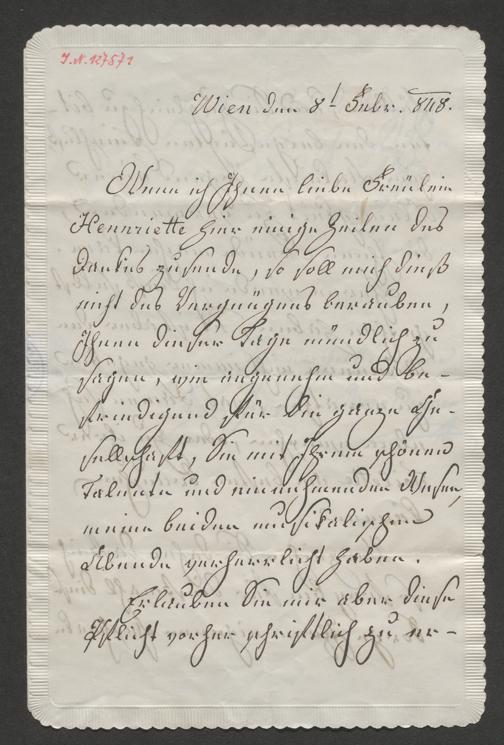 I.N. 127571
Wien den 8t Febr. 848.
Wenn ich Ihnen liebe Fräulein
Henriette hier einige Zeilen des
Dankes zusende, so soll mich dieß
nicht des Vergnügens berauben,
Ihnen dieser Tage mündlich zu
sagen, wie angenehm und be-
friedigend für die ganze Ge-
sellschaft, Sie mit Ihrem schönen
Talente und einnehmenden Wesen,
meine beiden musikalischen
Abende verherrlicht haben.
Erlauben Sie mir aber diese
Pflicht vorher schriftlich zu er-